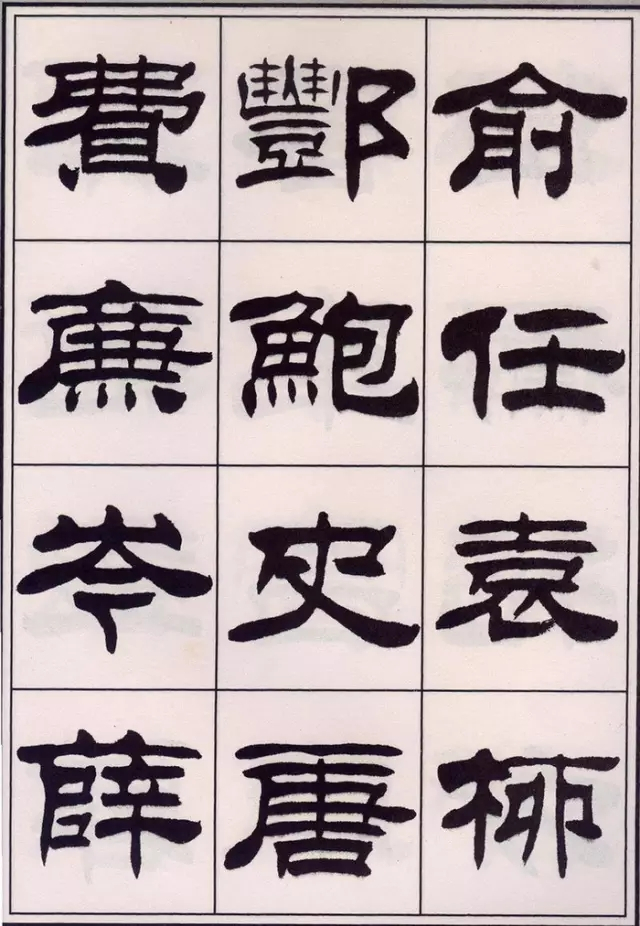 俞任袁柳
酆鮑史唐
費廉岑薛